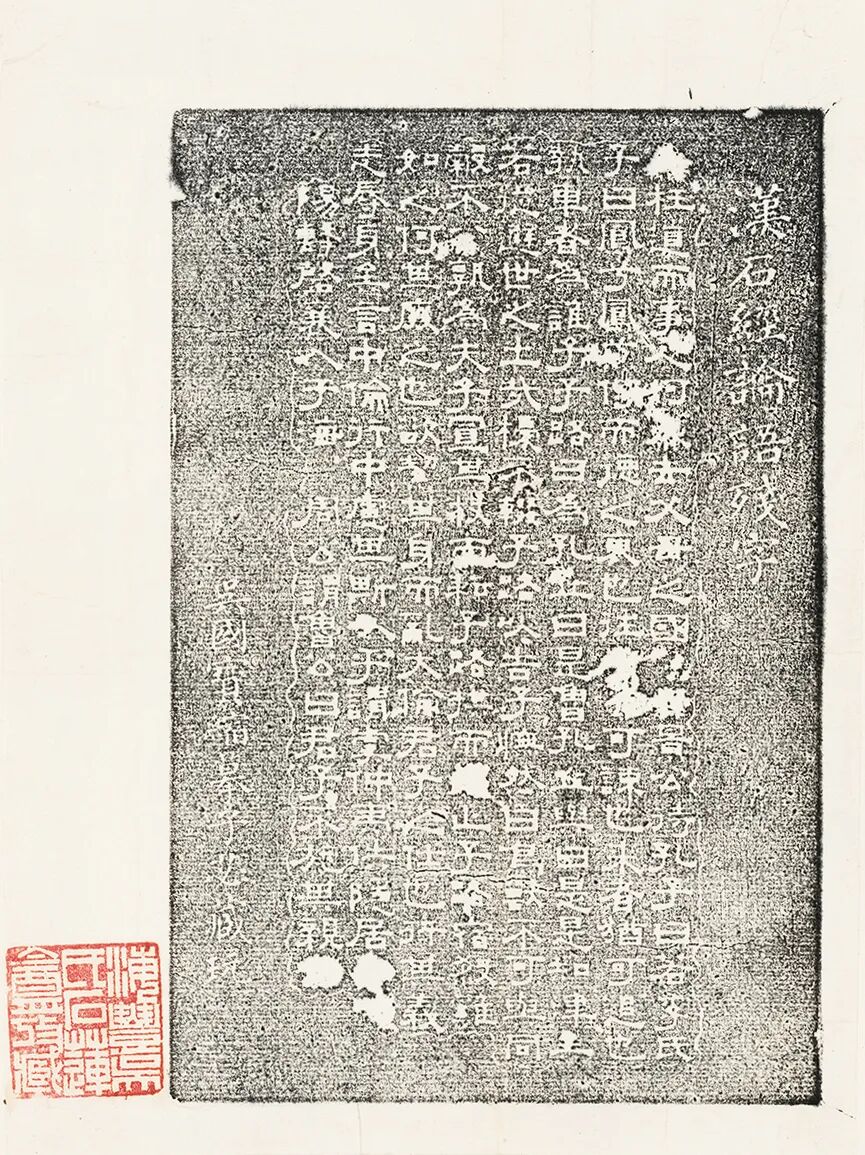 漢石經論語殘字
枉道而事人何必去父母之國景公待孔子曰若季氏
子曰鳳兮鳳兮何而德之衰也往可諫也來者猶可追也
執車者為誰子子路曰為孔丘曰是魯孔丘與曰是是知津矣
若從避世之士哉櫌不輟子路以告子憮然曰鳥獸不可與同
穀不分孰為夫子置其杖而耘子路拱而止子路宿殺雞
如之何其廢之也欲絜其身而亂大倫君子之仕也行其義
志辱身矣言中倫行中慮其斯以乎謂虞仲夷佚隱居
陽擊磬襄入于海 周公謂魯公曰君子不施其親
吳國寶
海豐吳氏石蓮盦珍藏